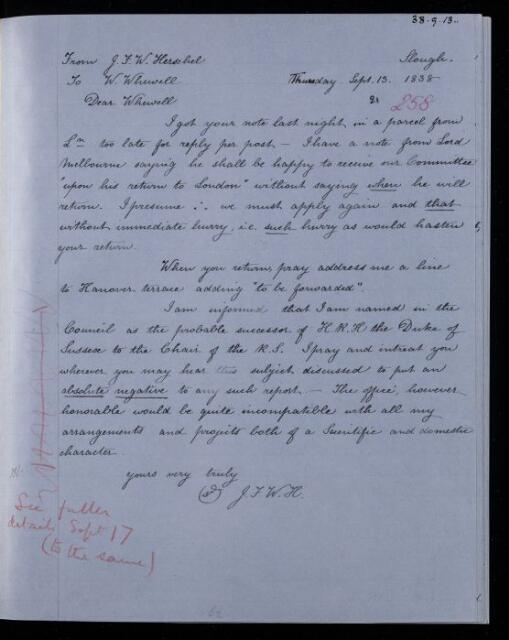 38-9-13.
From J.F.W. Herschel Slough.
To W. Whewell Thursday Sept. 13. 1838
Dear Whewell 258
I got your note last night in a parcel from
Ln too late for reply per post – I have a note from Lord
Melbourne saying he shall be happy to receive our Committee
"upon his return to London" without saying when he will
return. I presume ∴ we must apply again and that
without immediate hurry, i.e. such hurry as would hasten
your return.
When you return, pray address me a line
to Hanover terrace adding "to be forwarded".
I am informed that I am named in the
Council as the probable successor of H.R.H the Duke of
Sussex to the Chair of the R.S. I pray and intreat you
wherever you may hear this subject discussed to put an
absolute negative to any such report. – The office, however
honorable would be quite incompatible with all my
arrangements and projects both of a Scientific and domestic
character.
yours very truly
(sd) J.F.W.H.
See fuller
details Sept 17
(to the same)